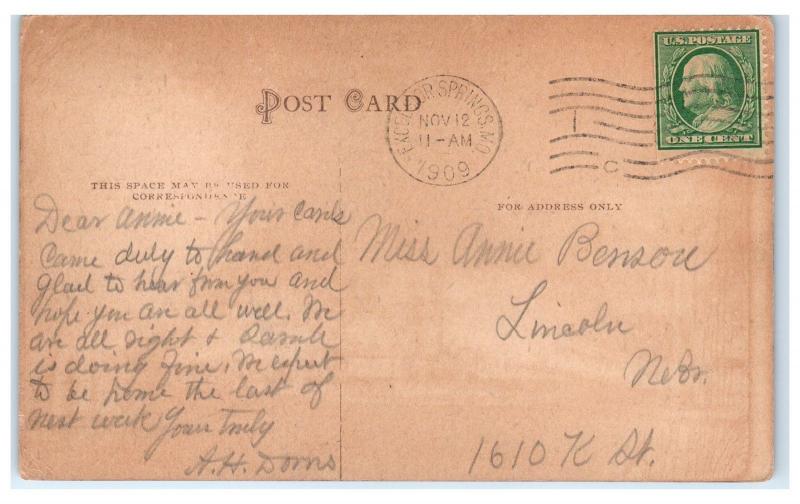 POST CARD
EXCELSIOR SPRINGS, MO.
NOV 12
11-AM
1909
1
C
U.S. POSTAGE
ONE CENT
THIS SPACE MAY BE USED FOR
CORRESPONDENCE
FOR ADDRESS ONLY
Dear Annie - Your cards
came duly to hand and
glad to hear from you and
hope you are all well. We
are all right &
is doing fine. We expect
to be home the last of
next week Yours Truly
A. H.
Miss Annie Benson
Lincoln
Nebr.
1610 K St.